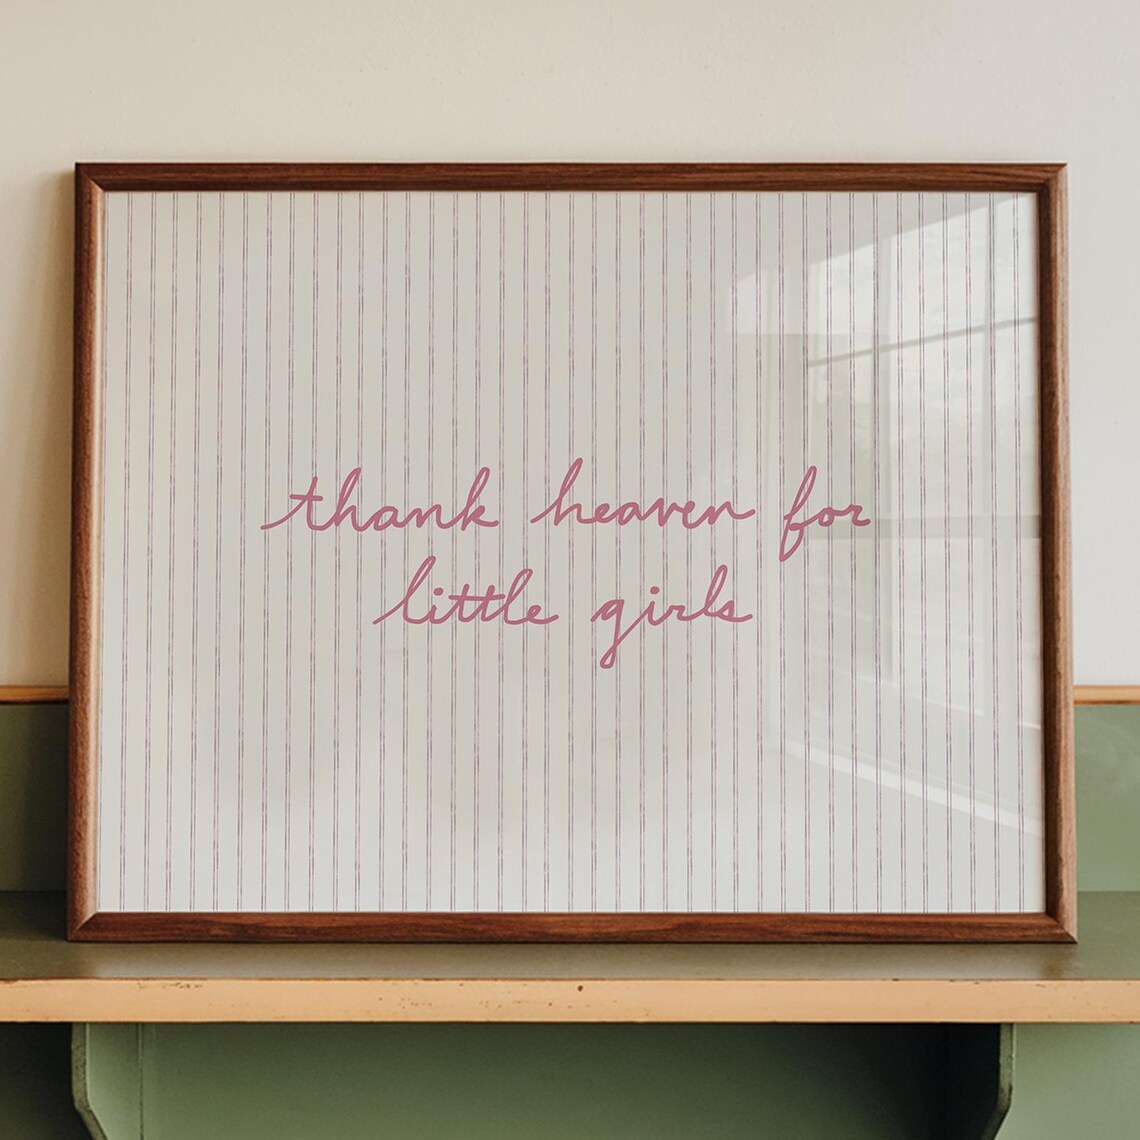 thank heaven for
little girls